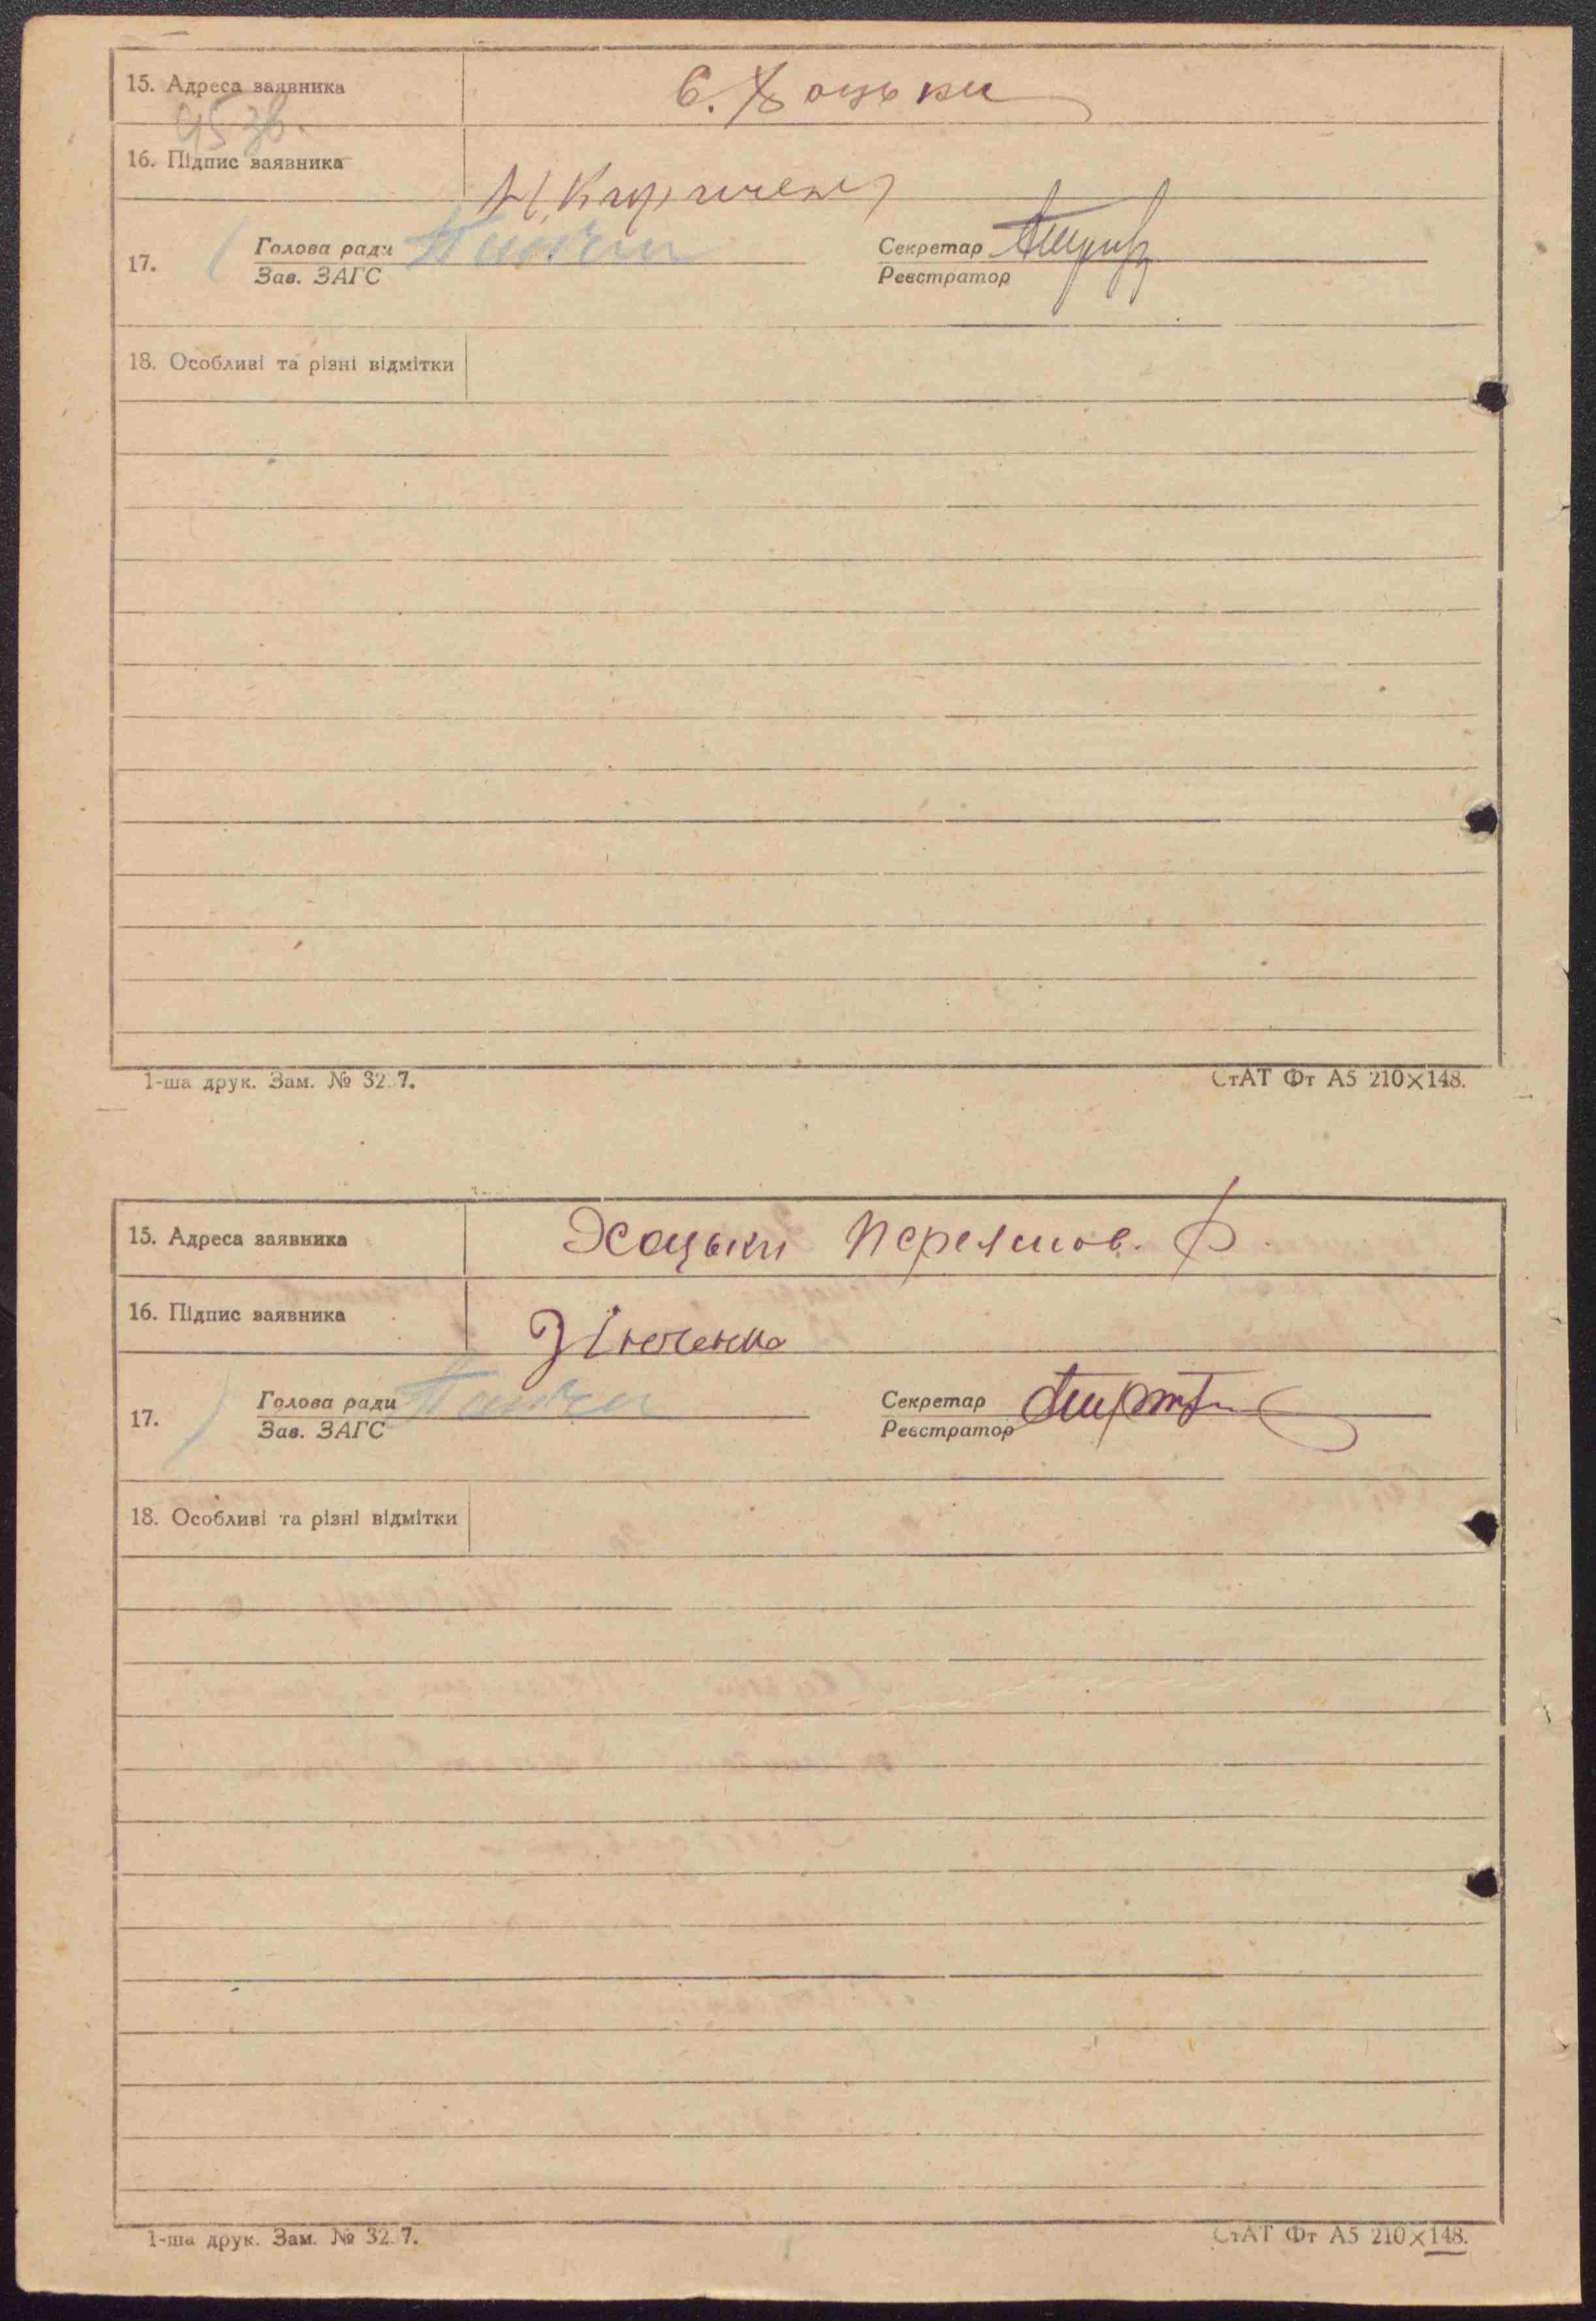 15. Адреса заявника с. Хоцьки
95 зв.
16. Підпис заявника
17. Голова ради Секретар
Зав. ЗАГС Реєстратор
18. Особливі та різні відмітки
1-ша друк. Зам. № 32 7. СтАТ Фт А5 210×148.
15. Адреса заявника Хоцьки Переяслов. Р.
16. Підпис заявника Зінченко
17. Голова ради Секретар
Зав. ЗАГС Реєстратор
18. Особливі та різні відмітки
1-ша друк. Зам. № 32 7. СтАТ Фт А5 210×148.